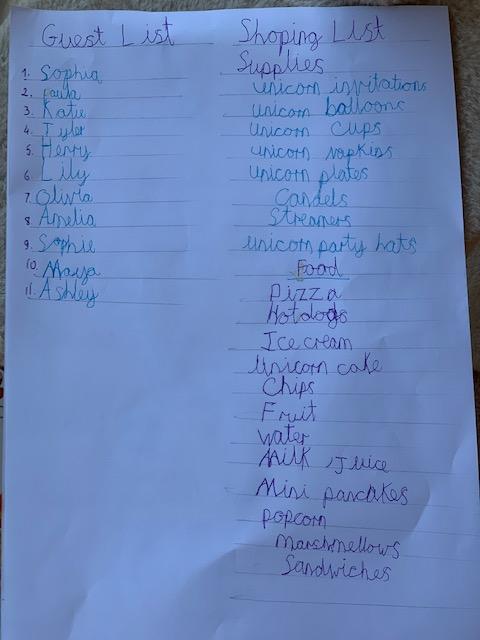 Guest List
1. Sophia
2. Paula
3. Katie
4. Tyler
5. Henry
6. Lily
7. Olivia
8. Amelia
9. Sophie
10. Maya
11. Ashley
Shoping List
Supplies
unicorn invitations
unicorn balloons
unicorn cups
unicorn napkins
unicorn plates
Candels
Streamers
unicorn party hats
Food
Pizza
Hotdogs
Ice cream
Unicorn cake
Chips
Fruit
water
Milk , Juice
Mini pancakes
popcorn
Marshmellows
Sandwiches